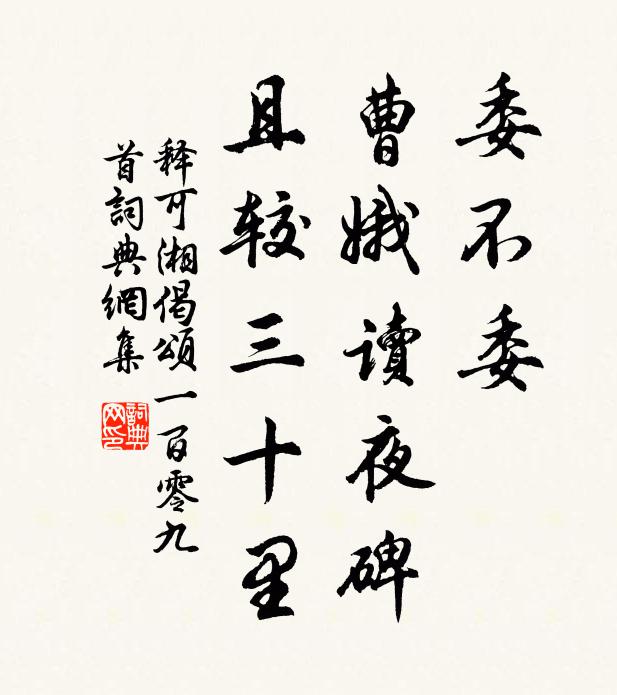 委不委
曹娥讀夜碑
且较三十里
释可湘偈頌一百零九
首詞典網集
詞典
网印